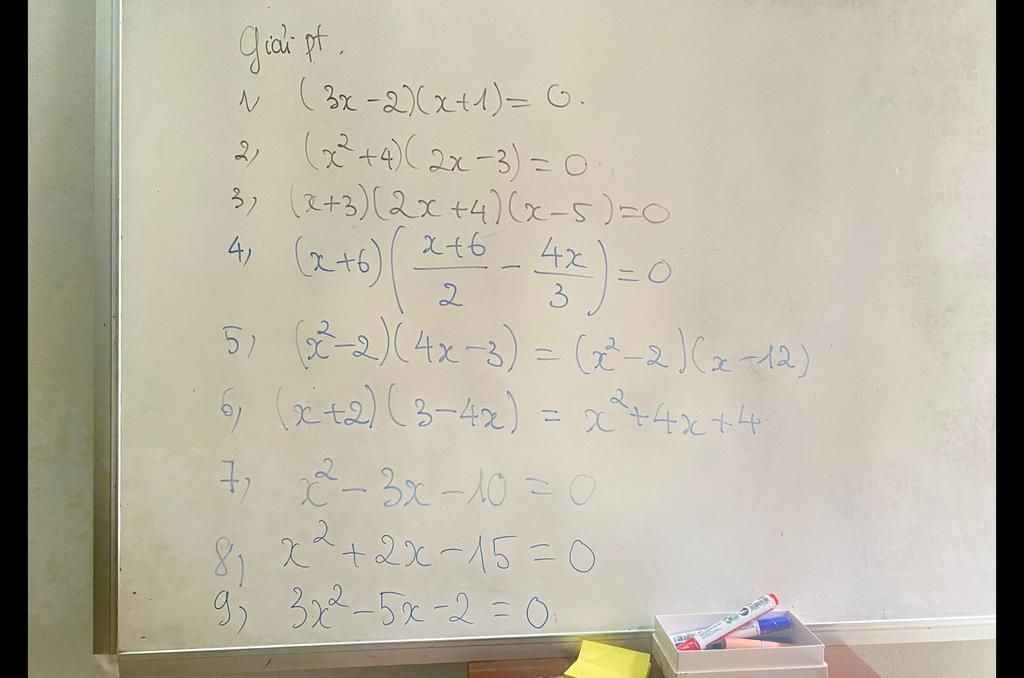 Giải pt.
1, (3x-2)(x+1)=0.
2, (x²+4)(2x-3)=0.
3, (x+3)(2x+4)(x-5)=0
4, (x+6)((x+6)/2 - 4x/3)=0
5, (x²-2)(4x-3) = (x²-2)(x-12)
6, (x+2)(3-4x) = x²+4x+4
7, x²-3x-10=0
8, x²+2x-15=0
9, 3x²-5x-2=0.